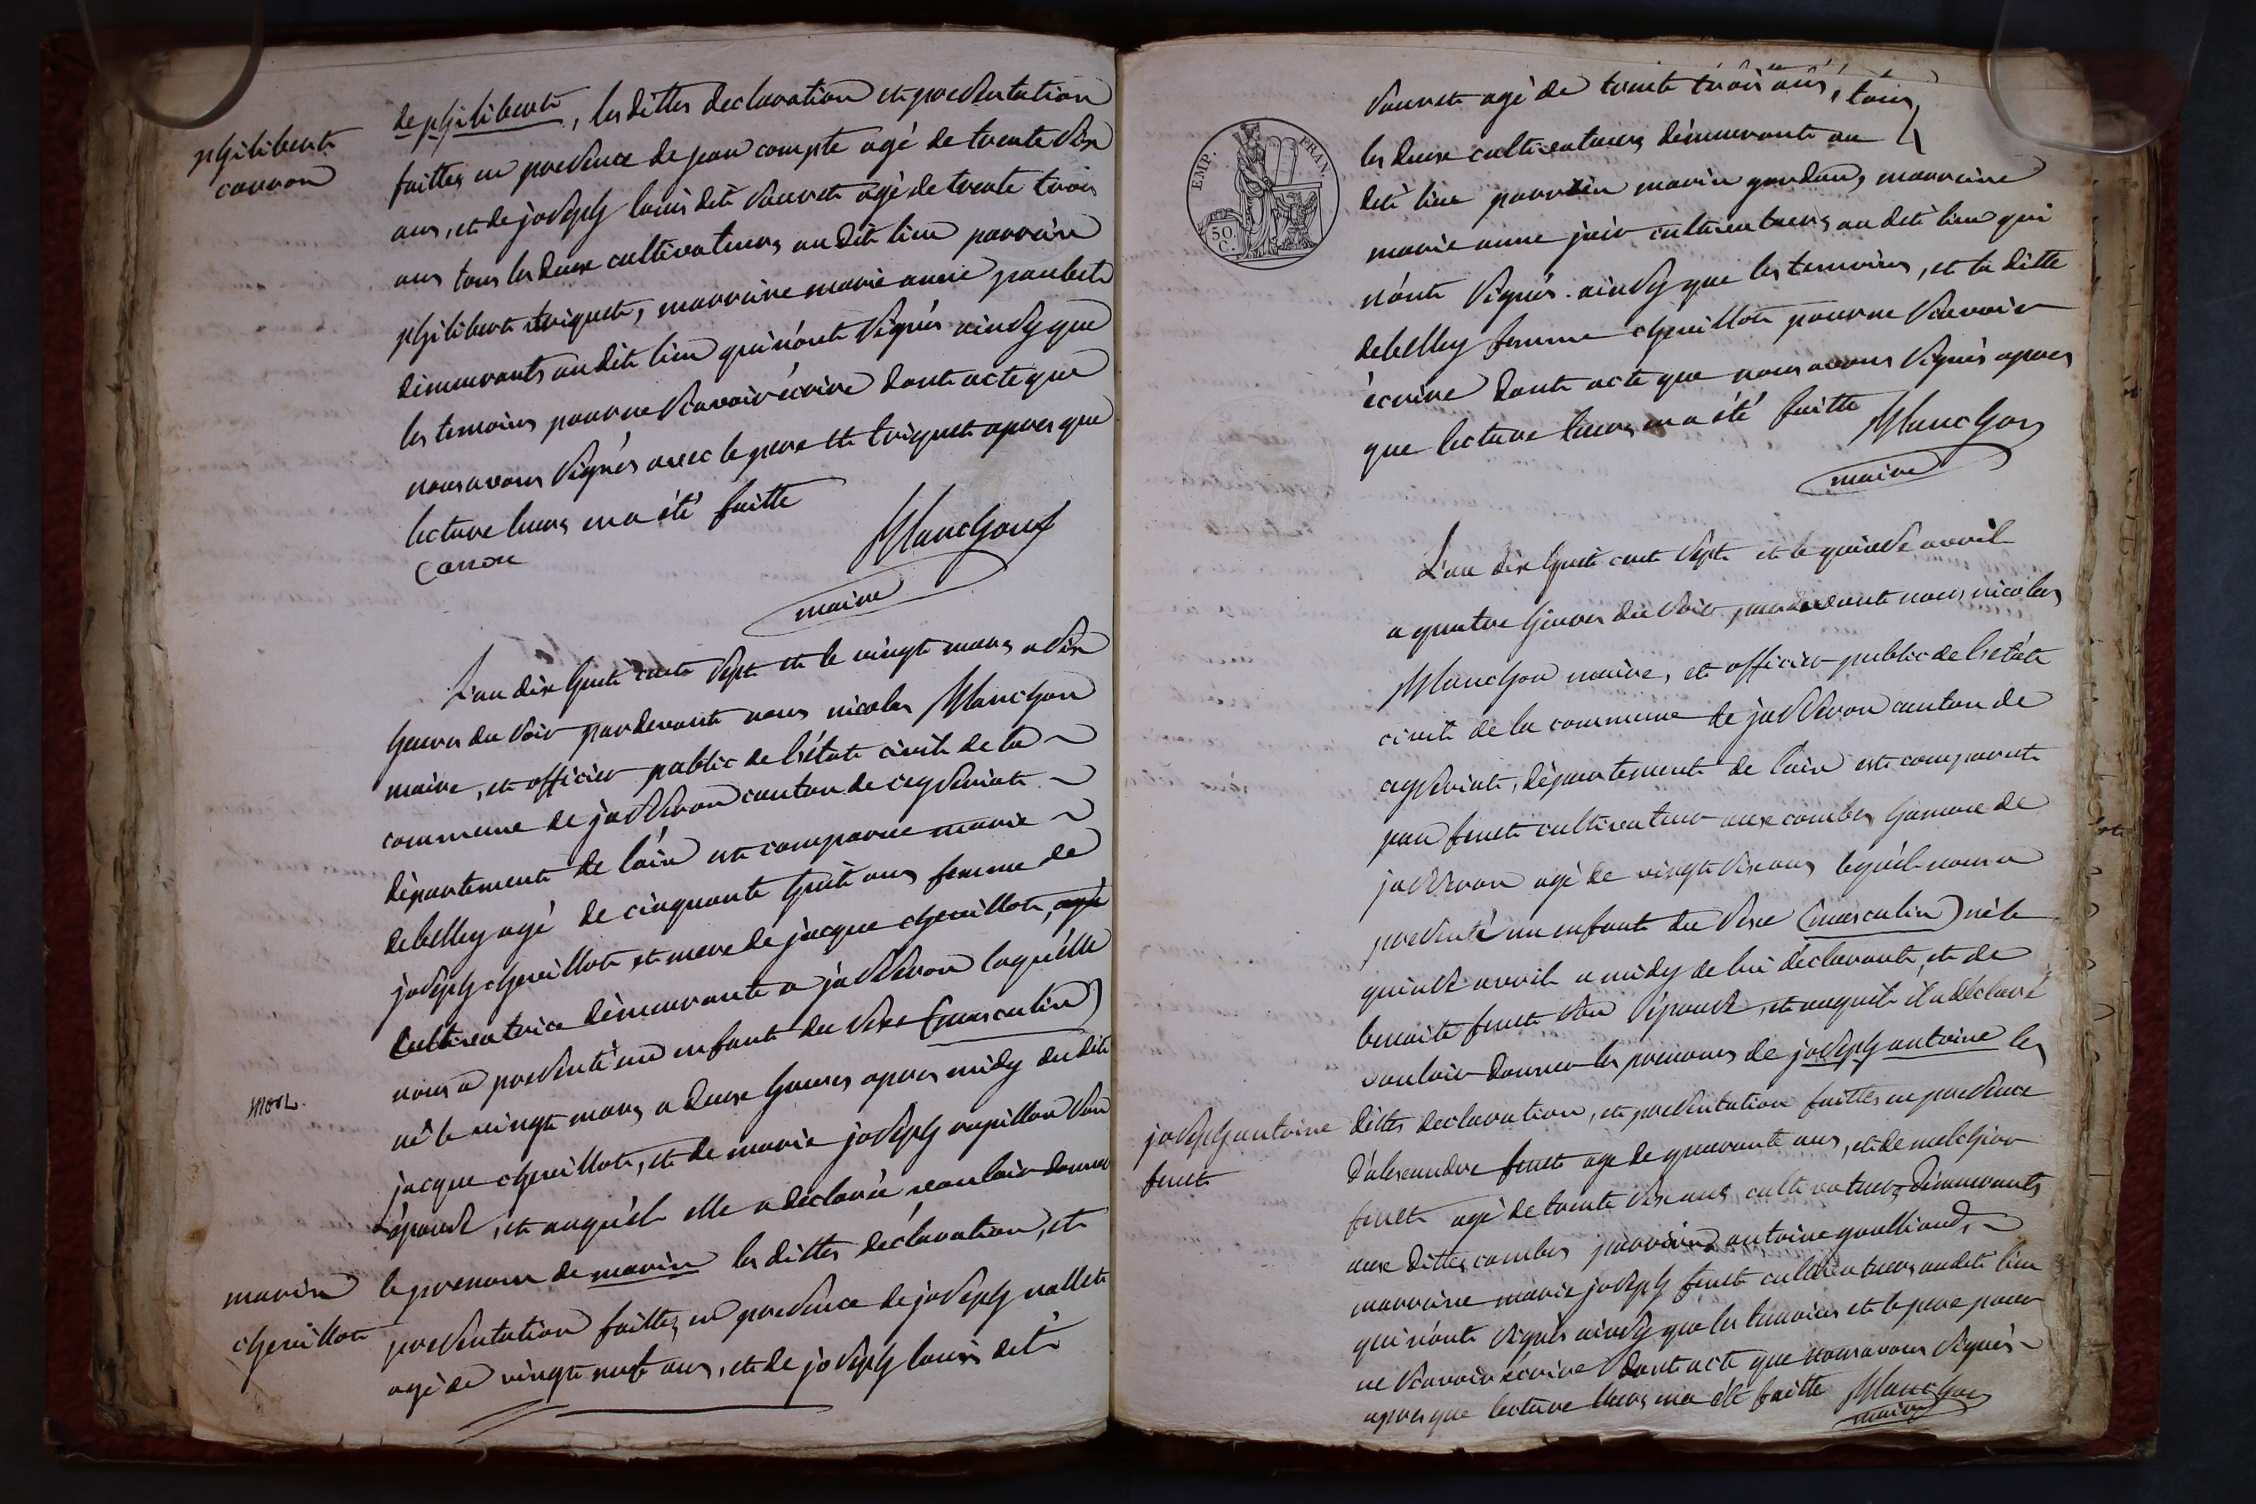 philibert
carron
de philibert, les dittes declaration et presentation
faittes en presence de jean compte agé de trente six
ans, et de joseph louis dit sauret agé de trente trois
ans tous les deux cultivateurs au dit lieu parrain
philibert triquet, marraine marie anne
demeurants au dit lieu qui n'ont signés ainsy que
les temoins pour ne scavoir écrire dont acte que
nous avons signés avec le pere et triquet apres que
lecture leurs en a été faitte
carron
Manchon
maire
L'an dix huit cent sept et le vingt mars a six
heures du soir pardevant nous nicolas Manchon
maire, et officier public de l'état civil de la
commune de jasseron canton de ceyseriat
département de l'ain est comparue marie
debelley agé de cinquante huit ans femme de
joseph chevillot et mere de jacque chevillot, agé
cultivatrice démeurante a jasseron laquelle
nous a presenté un enfant du sexe (masculin)
né le vingt mars a deux heures apres midy du dit
mort.
jacque chevillot, et de marie joseph rapillon son
épouse, et auquel elle a déclarée vouloir donner
marin
chevillot
le prenom de marin les dittes déclaration, et
presentation faittes en presence de joseph vallet
agé de vingt neuf ans, et de joseph louis dit
sauret agé de trente trois ans, tous
les deux cultivateurs démeurants au
dit lieu parrain marin, marraine
marie anne cultivateurs au dit lieu qui
n'ont signés ainsy que les temoins, et la ditte
debelley femme chevillot pour ne scavoir
écrire dont acte que nous avons signés apres
que lecture leurs en a été faitte Manchon
maire
EMP. FRAN.
50.
C.
L'an dix huit cent sept et le quinse avril
a quatre heures du soir pardevant nous nicolas
Manchon maire, et officier public de l'état
civil de la commune de jasseron canton de
ceyseriat, département de l'ain est comparut
jean feuet cultivateur aux combes hameau de
jasseron agé de vingt six ans lequel nous a
presenté un enfant du sexe (masculin) né le
quinse avril a midy de lui déclarant, et de
benoite feuet son épouse, et auquel il a déclaré
vouloir donner les prenoms de joseph antoine les
joseph antoine
feuet
dittes declaration, et presentation faittes en presence
d'alexandre feuet agé de quarante ans, et de melchior
feuet agé de trente six ans cultivateurs démeurants
aux dittes combes parrain antoine
marraine marie joseph feuet cultivateurs au dit lieu
qui n'ont signés ainsy que les temoins et le pere pour
ne scavoir écrire dont acte que nous avons signés
apres que lecture leurs en a été faitte Manchon
maire